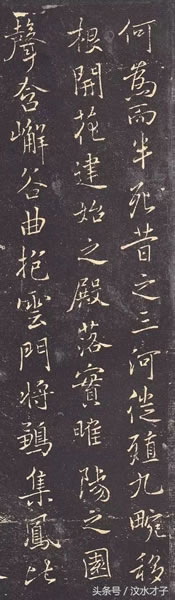 何為而半死昔之三河徙殖九畹移
根開花建始之殿落實睢陽之園
聲含嶰谷曲抱雲門将鶵集鳳比
头条号／汶水才子